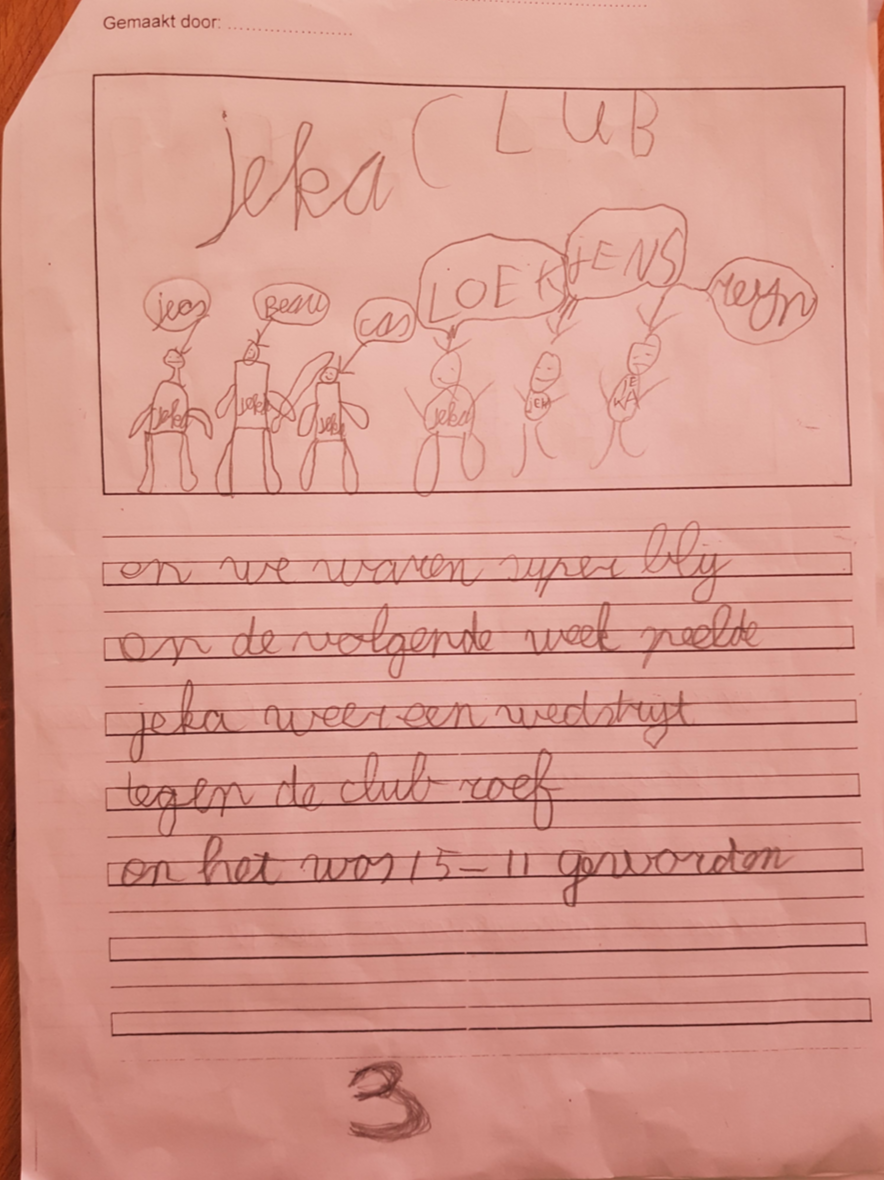 Gemaakt door:
jeka CLUB
LOEK JENS
jens Beau cas reyn
jeka jeka jeka jeka JEKA JE
KA
en we waren super blij
en de volgende week speelde
jeka weer een wedstrijt
tegen de club roef
en het was 15-11 geworden
3